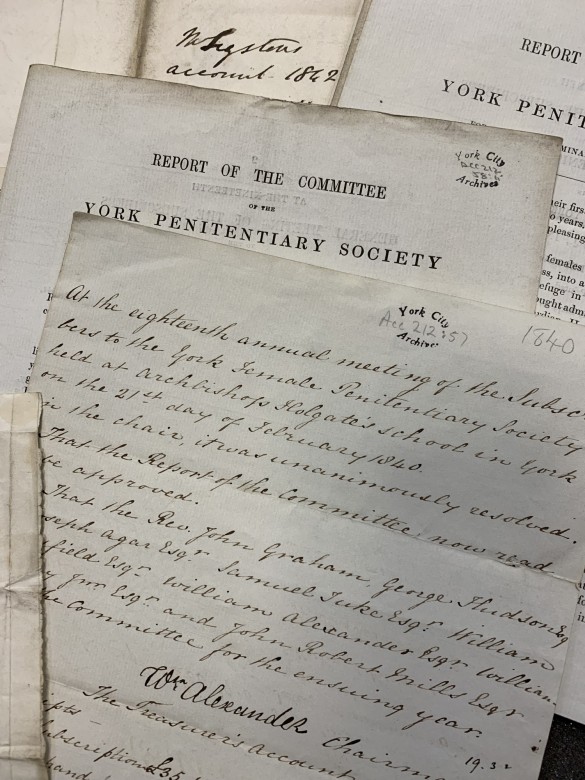 account 1842
REPORT
YORK PENIT
York City
Archives
REPORT OF THE COMMITTEE
OF THE
YORK PENITENTIARY SOCIETY
eir firs
o years.
pleasing
females
ss, into a
efuge in
ought adm
York City
Acc 212:57
Archives
1840
At the eighteenth annual meeting of the Subsc
bers to the York Female Penitentiary Society
held at Archbishop Holgate's school in York
on the 21st day of February 1840.
in the chair, it was unanimously resolved.
That the Report of the Committee now read
be approved.
That the Rev. John Graham, George Hudson Esq
seph Agar Esqr. Samuel Tuke Esqr. William
field Esqr. William Alexander Esqr William
y Junr. Esqr. and John Robert Mills Esqr
he Committee for the ensuing year.
Wm Alexander Chairma
The Treasurer's account
ipts
ubscriptions £35
19.3